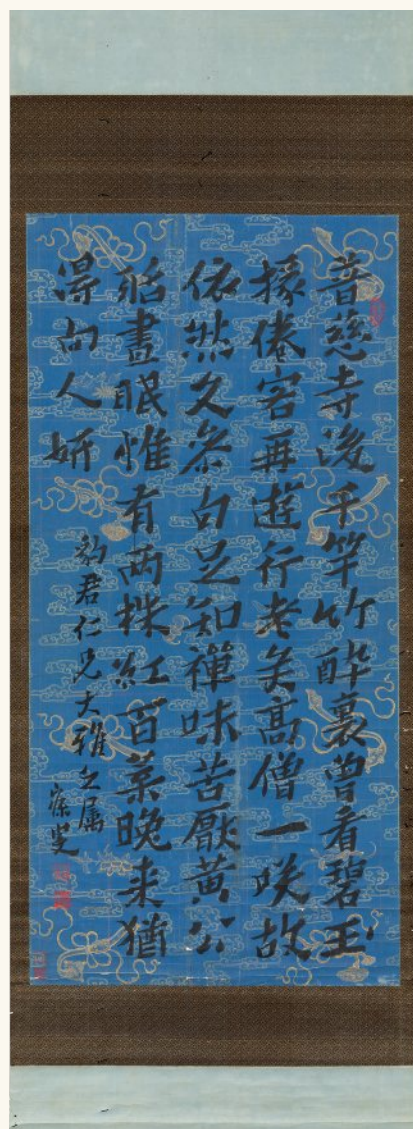 普慈寺後千竿竹醉裏曾看碧玉
椽倦客再遊行老矣髙僧一咲故
依然久叅白足知禪味苦厭黃公
聒晝眠惟有两株紅百葉晚来猶
得向人妍
劭君仁兄大雅之属
寐叟